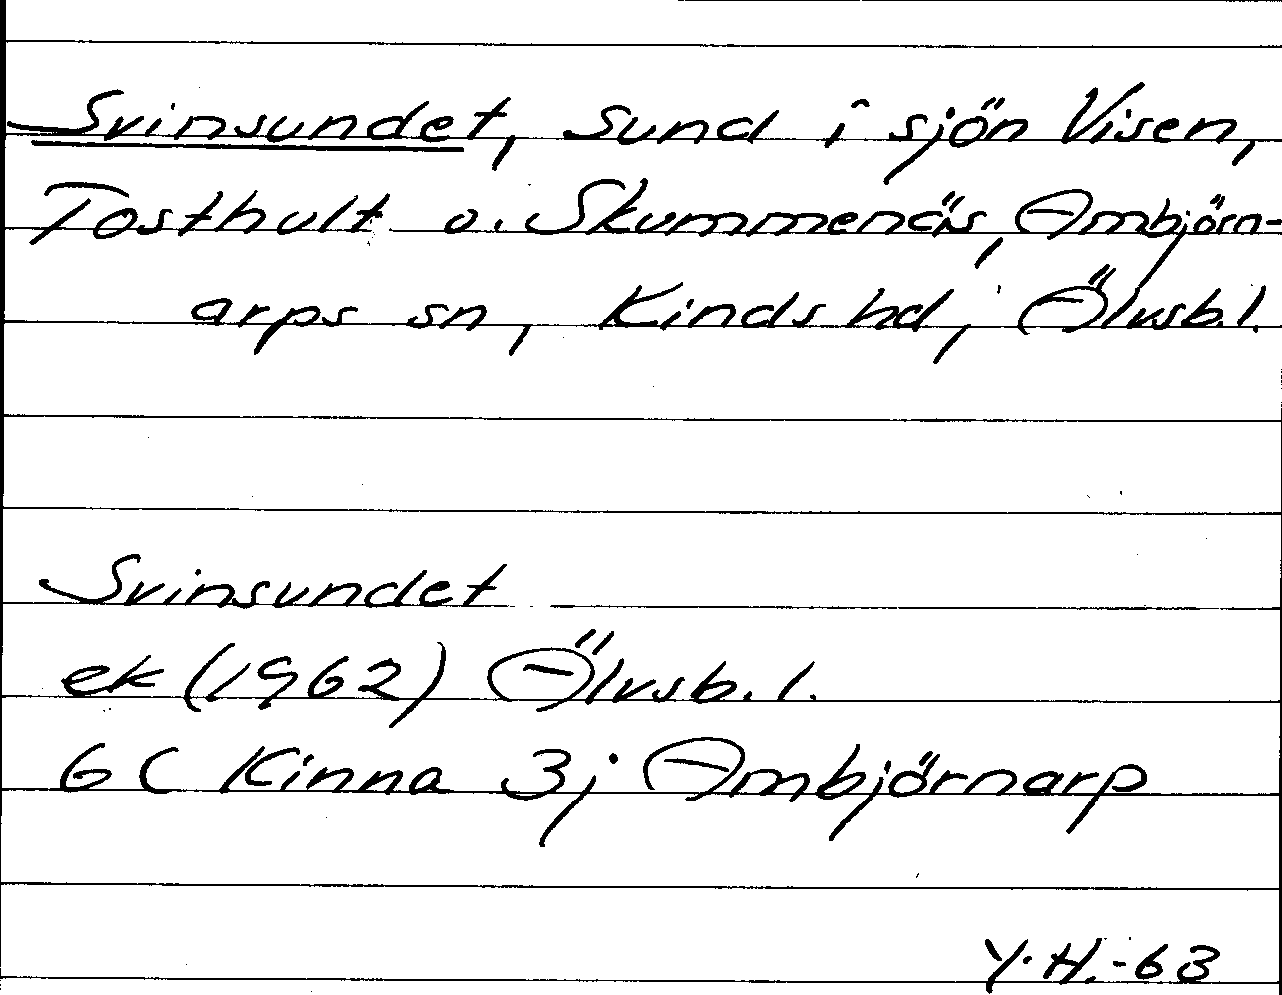 Svinsundet, sund i sjön Visen,
Tosthult o. Skummenäs, Ambjörn-
arps sn, Kinds hd, Älvsb.l.
Svinsundet
ek (1962) Älvsb.l.
6C Kinna 3j Ambjörnarp
Y.H.-63